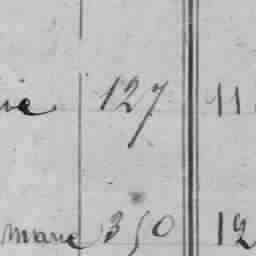 ie 127 11
marie 350 12